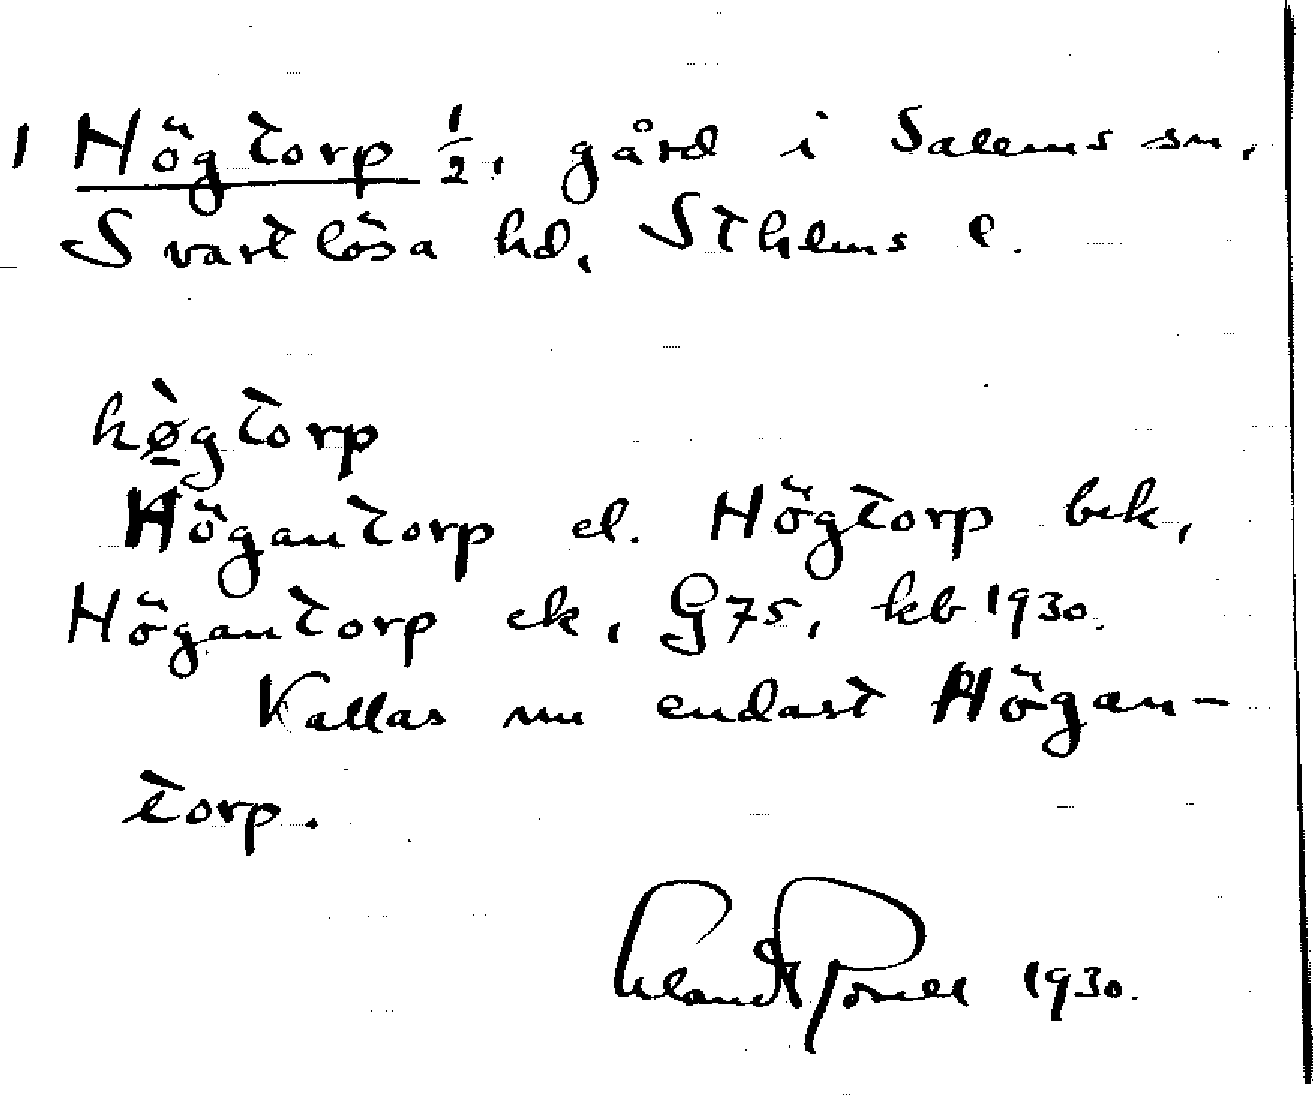 1 Högtorp 1/2, gård i Salems sn,
Svartlösa hd, Sthlms l.
hø̀gtorp
Högantorp el. Högtorp bek,
Högantorp ek, G75, kb 1930.
Kallas nu endast Högan-
torp.
1930.